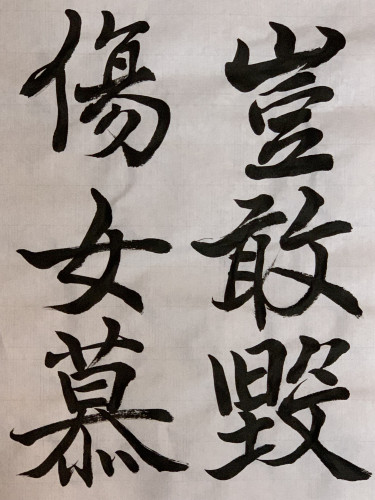 豈敢毀
傷女慕